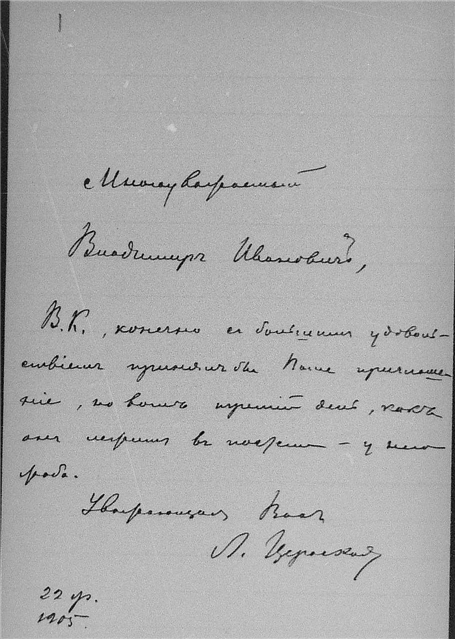 Многоуважаемый
Владимиръ Ивановичъ,
В.К., конечно съ большимъ удоволь-
ствіемъ принялъ бы Ваше приглаше-
ніе, но вотъ третій день, какъ
онъ лежитъ въ постели – у него
жаба.
Уважающая Васъ
Л. Цераская
22
1905.